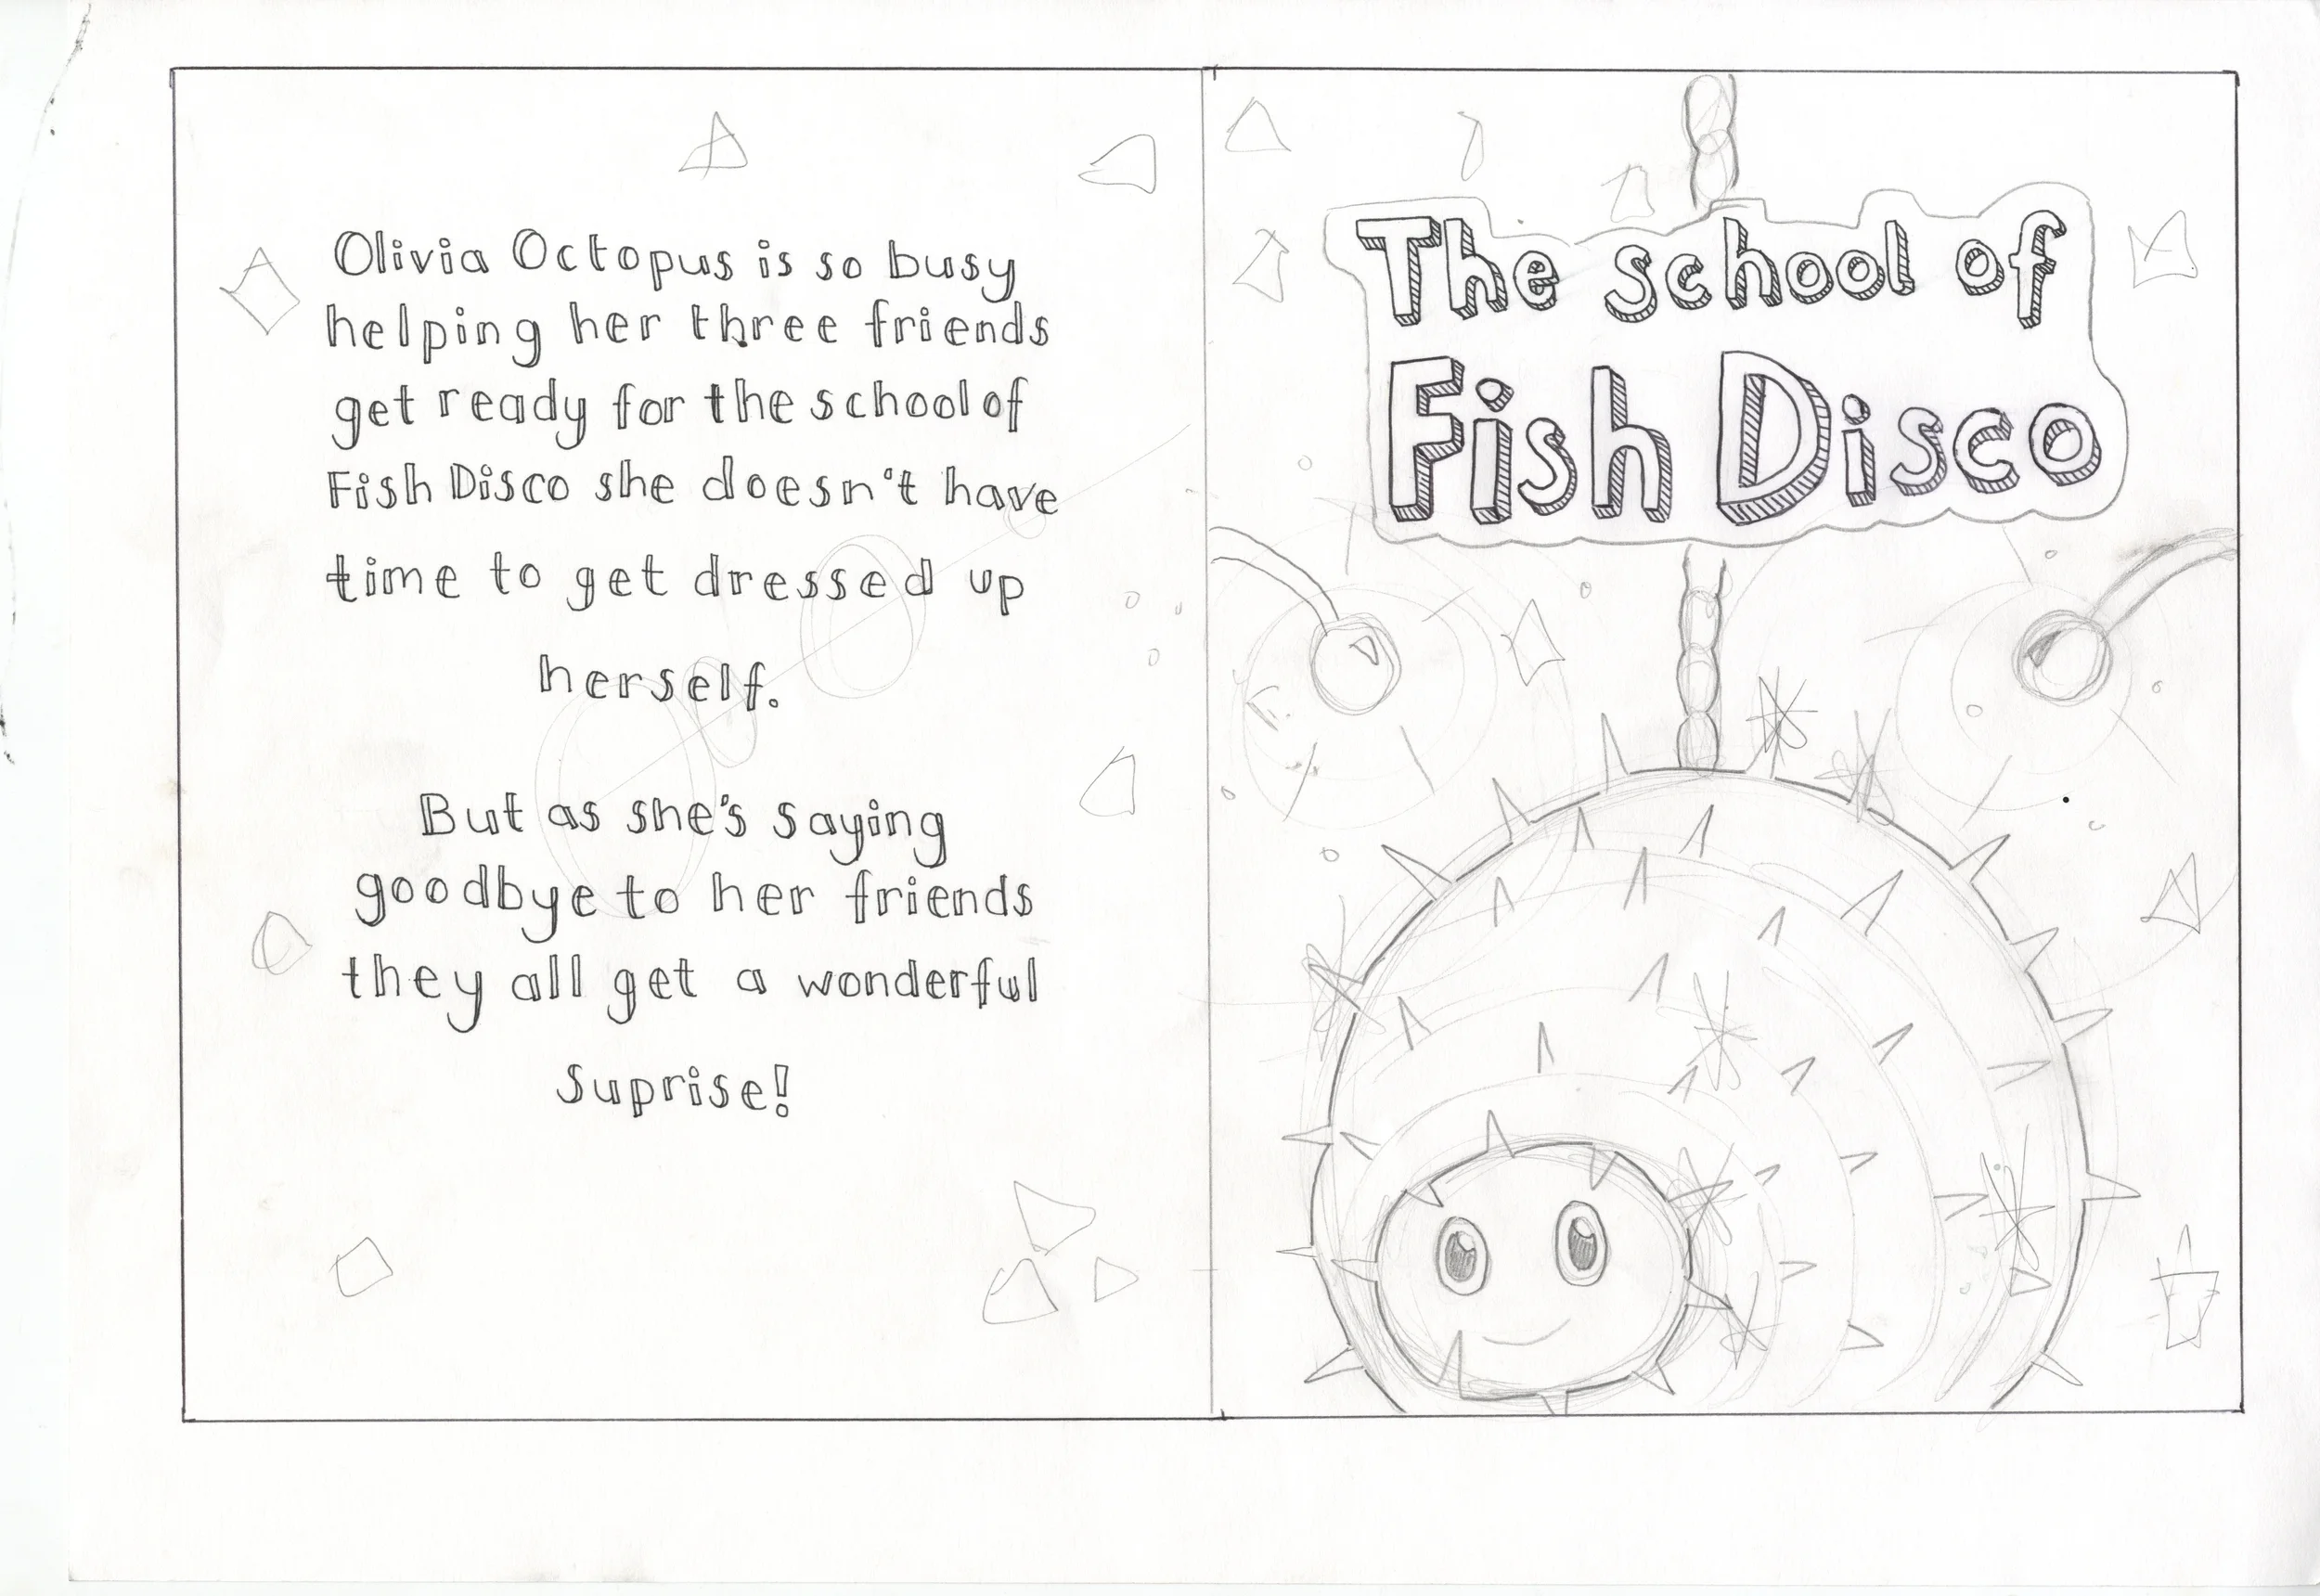 Olivia Octopus is so busy
helping her three friends
get ready for the school of
Fish Disco she doesn't have
time to get dressed up
herself.
But as she's saying
goodbye to her friends
they all get a wonderful
Suprise!
The school of
Fish Disco